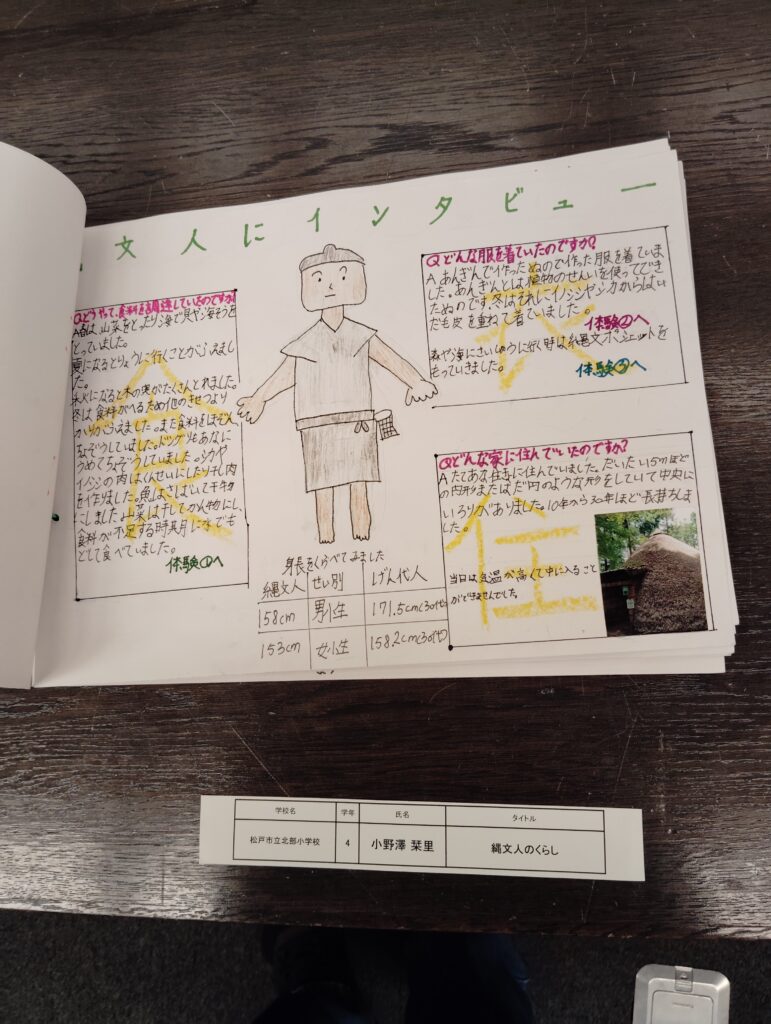 文人にインタビュー
Qどうやって食料を調達していたのですか?
A春は、山菜をとったり海で貝や海そうを
とっていました。
夏になるとりょうしに行くことがふえまし
た。
秋になると木の実がたくさんとれました。
冬は食料がへるため他のきせつより
かりがふえました。また食料をほぞん、
ちょぞうしていました。ドングリもあなに
うめてちょぞうしていました。シカや
イノシシの肉はくんせいにしたり干し肉
を作りました。魚はさばいて干キ物
にしました。山菜は干してかん物にし、
食料が不足する時其月に水でも
どして食べていました。
体験①へ
Qどんな服を着ていたのですか?
Aあんぎんで作ったぬので作った服を着ていま
した。あんぎんとは植物のせんいを使ってできた
たぬのです。冬はそれにイノシシやシカからはい
だ毛皮を重ねて着ていました。
体験②へ
森や海にさいしゅうに行く時は縄文ポシェットを
もっていきました。
体験③へ
Qどんな家に住んでいたのですか?
Aたてあな住きに住んでいました。だいたい5mほど
の円形またはだ円のような形をしていて中央に
いろりがありました。10年から30年ほど長持ちしま
した。
当日は気温が高くて中に入ること
ができませんでした。
食
衣
住
身長をくらべてみました
縄文人 せい別 げん代人
158cm 男小生 171.5cm(30代)
153cm 女小生 158.2cm(30代)
学校名 学年 氏名 タイトル
松戸市立北部小学校 4 小野澤 栞里 縄文人のくらし